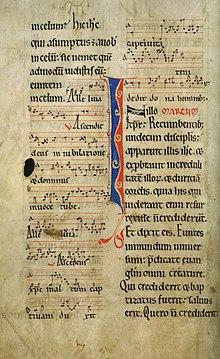 in celum: hic ihc
qui asumptus ē a uob
in celū: sic ueniet quē
admodū uidistis eū
euntem
in celum. Alle luia
Ascendit
deus in iubilatione
& dominus
in uoce tube
Alle luia
Ascendens
xpc in altum cap
tiuam du xit
captiuita
tem
dedit dona hominib;
In illo MARCVM
Recumbentib;
undecim discipls:
apparuit illis ihc. &
exprobrauit increduli
tatē illor. & duritiā
cordis. quia his qui
uiderant eum resur
rexisse n̄ crediderūt.
Et dixit eis. Euntes
in mundum uniuer
sum. predicate euan
gliū omni creature.
Qui crediderit & bap
tizatus fuerit. saluus
erit. Qui uero n̄ crediderit